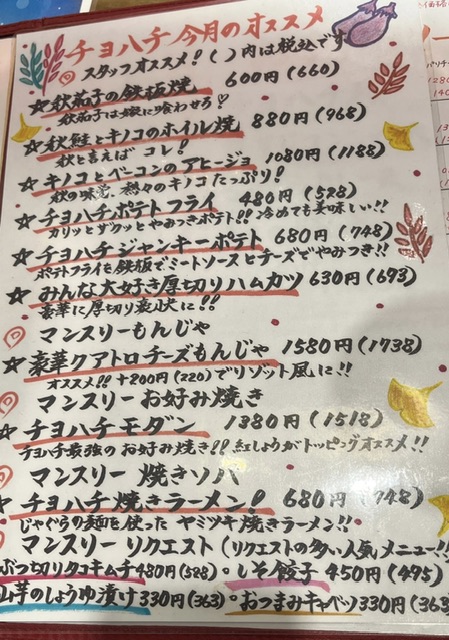 チヨハチ今月のオススメ
スタッフオススメ!( )内は税込です
☆秋茄子の鉄板焼 600円(660)
秋茄子は嫁に喰わせろ!
☆秋鮭とキノコのホイル焼 880円(968)
秋と言えばコレ!
☆キノコとベーコンのアヒージョ 1080円(1188)
秋の味覚、種々のキノコたっぷり!
☆チヨハチポテトフライ 480円(528)
カリッとザクッとやみつきポテト!!冷めても美味しい!!
☆チヨハチジャンキーポテト 680円(748)
ポテトフライを鉄板でミートソースとチーズでやみつき!!
☆みんな大好き厚切りハムカツ 630円(693)
豪華に厚切り
マンスリーもんじゃ
☆豪華クアトロチーズもんじゃ 1580円(1738)
オススメ!!+200円(220)でリゾット風に!!
マンスリーお好み焼き
☆チヨハチモダン 1380円(1518)
チヨハチ最強のお好み焼き!!紅しょうがトッピングオススメ!!
マンスリー焼きソバ
☆チヨハチ焼きラーメン! 680円(748)
の麺を使ったヤミツキ焼きラーメン!!
マンスリーリクエスト(リクエストの多い人気メニュー!!
ぶつ切りタコキムチ480円(528)。しそ餃子 450円(495)
山芋のしょうゆ漬け330円(363)。おつまみキャベツ330円(363